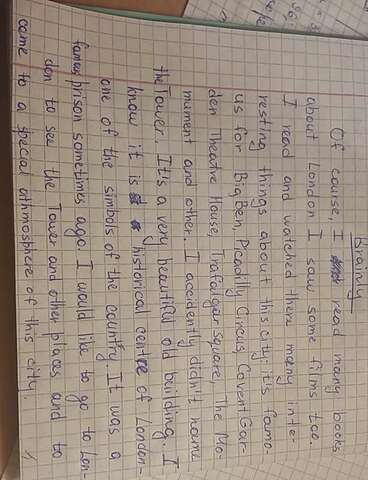 Brainly
Of course, I read many books
about London I saw some films too.
I read and watched there many inte-
resting things about this city: it's famo-
us for Big Ben, Picadilly Circus, Covent Gar-
den Theatre House, Trafalgar Square, The Mo-
nument and other. I accidently didn't name
the Tower. It's a very beautiful old building. I
know it is a historical centre of London-
one of the simbols of the country. It was a
famous prison sometimes ago. I would like to go to Lon-
don to see the Tower and other places and to
come to a special athmosphere of this city.